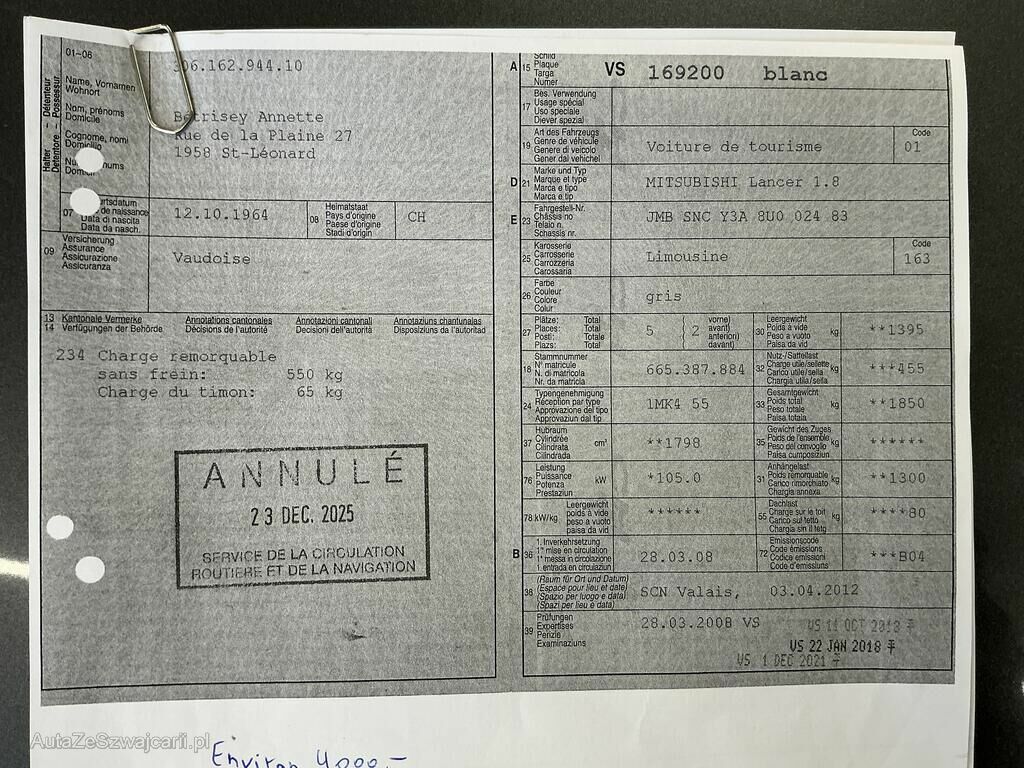 01-06
306.162.944.10
Name, Vornamen
Wohnort
Nom, prénoms
Domicile
Cognome, nomi
Domicilio
Halter - Détenteur
Detentore - Possessur
Betrisey Annette
Rue de la Plaine 27
1958 St-Léonard
07
de naissance
Data di nascita
Data da nasch.
12.10.1964
08 Heimatstaat
Pays d'origine
Paese d'origine
Stadi d'origin
CH
09 Versicherung
Assurance
Assicurazione
Assicuranza
Vaudoise
13 Kantonale Vermerke Annotations cantonales Annotazioni cantonali Annotaziuns chantunalas
14 Verfügungen der Behörde Décisions de l'autorité Decisioni dell'autorità Disposiziuns da l'autoritad
234 Charge remorquable
sans frein: 550 kg
Charge du timon: 65 kg
ANNULÉ
23 DEC. 2025
SERVICE DE LA CIRCULATION
ROUTIERE ET DE LA NAVIGATION
A 15 Schild
Plaque
Targa
Numer
VS 169200 blanc
17 Bes. Verwendung
Usage spécial
Uso speciale
Diever spezial
19 Art des Fahrzeugs
Genre de véhicule
Genere di veicolo
Gener dal vehichel
Voiture de tourisme
Code
01
D 21 Marke und Typ
Marque et type
Marca e tipo
Marca e tip
MITSUBISHI Lancer 1.8
E 23 Fahrgestell-Nr.
Châssis no
Telaio n.
Schassis nr.
JMB SNC Y3A 8U0 024 83
25 Karosserie
Carrosserie
Carrozzeria
Carossaria
Limousine
Code
163
26 Farbe
Couleur
Colore
Colur
gris
27 Plätze: Total
Places: Total
Posti: Totale
Plazs: Total
5 2
vorne)
avant)
anteriori)
davant)
30 Leergewicht
Poids à vide
Peso a vuoto
Paisa da vid
kg
**1395
18 Stammnummer
N° matricule
N. di matricola
Nr. da matricla
665.387.884
32 Nutz-/Sattellast
Charge utile/sellette
Carico utile/sella
Chargia utila/sella
kg
***455
24 Typengenehmigung
Réception par type
Approvazione del tipo
Approvaziun dal tip
1MK4 55
33 Gesamtgewicht
Poids total
Peso totale
Paisa totala
kg
**1850
37 Hubraum
Cylindrée
Cilindrata
Cilindrada
cm³
**1798
35 Gewicht des Zuges
Poids de l'ensemble
Peso del convoglio
Paisa cumposiziun
kg
******
76 Leistung
Puissance
Potenza
Prestaziun
kW
*105.0
31 Anhängelast
Poids remorquable
Carico rimorchiato
Chargia annexa
kg
**1300
78 kW/kg
Leergewicht
poids à vide
peso a vuoto
paisa da vid
******
55 Dachlast
Charge sur le toit
Carico sul tetto
Chargia sin il tetg
kg
****80
B 36 1. Inverkehrsetzung
1re mise en circulation
1a messa in circolazione
1 entrada en circulaziun
28.03.08
72 Emissionscode
Code émissions
Codice emissioni
Code d'emissiuns
***B04
38 (Raum für Ort und Datum)
(Espace pour lieu et date)
(Spazio per luogo e data)
(Spazi per lieu e data)
SCN Valais, 03.04.2012
39 Prüfungen
Expertises
Perizie
Examinaziuns
28.03.2008 VS
VS 22 JAN 2018
VS 1 DEC 2021
AutaZeSzwajcarii.pl
Environ 4000.-